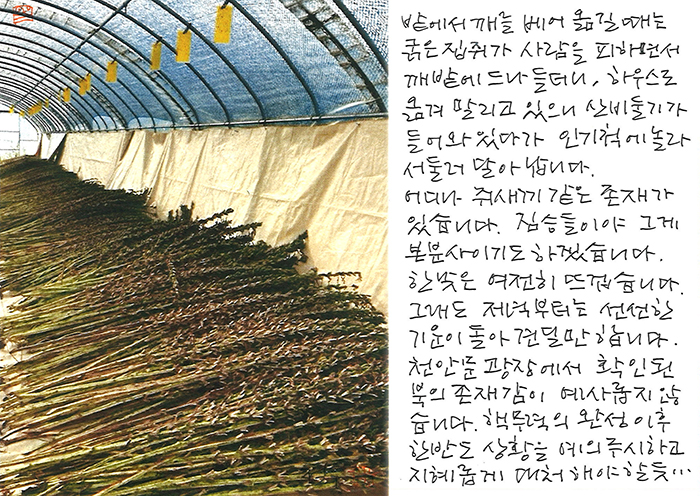 밭에서 깨를 베어 옮길때는
굵은 집쥐가 사람을 피하면서
깨밭에 드나들더니, 하우스로
옮겨 말리고 있으니 산비둘기가
들어와 있다가 인기척에 놀라
서둘러 달아납니다.
어디나 쥐새끼 같은 존재가
있습니다. 짐승들이야 그게
본분사이기도 하겠습니다.
한낮은 여전히 뜨겁습니다.
그래도 저녁부터는 선선한
기운이 돌아 견딜만 합니다.
천안문 광장에서 확인된
북의 존재감이 예사롭지 않
습니다. 핵무력의 완성 이후
한반도 상황을 예의주시하고
지혜롭게 대처해야 할 듯...